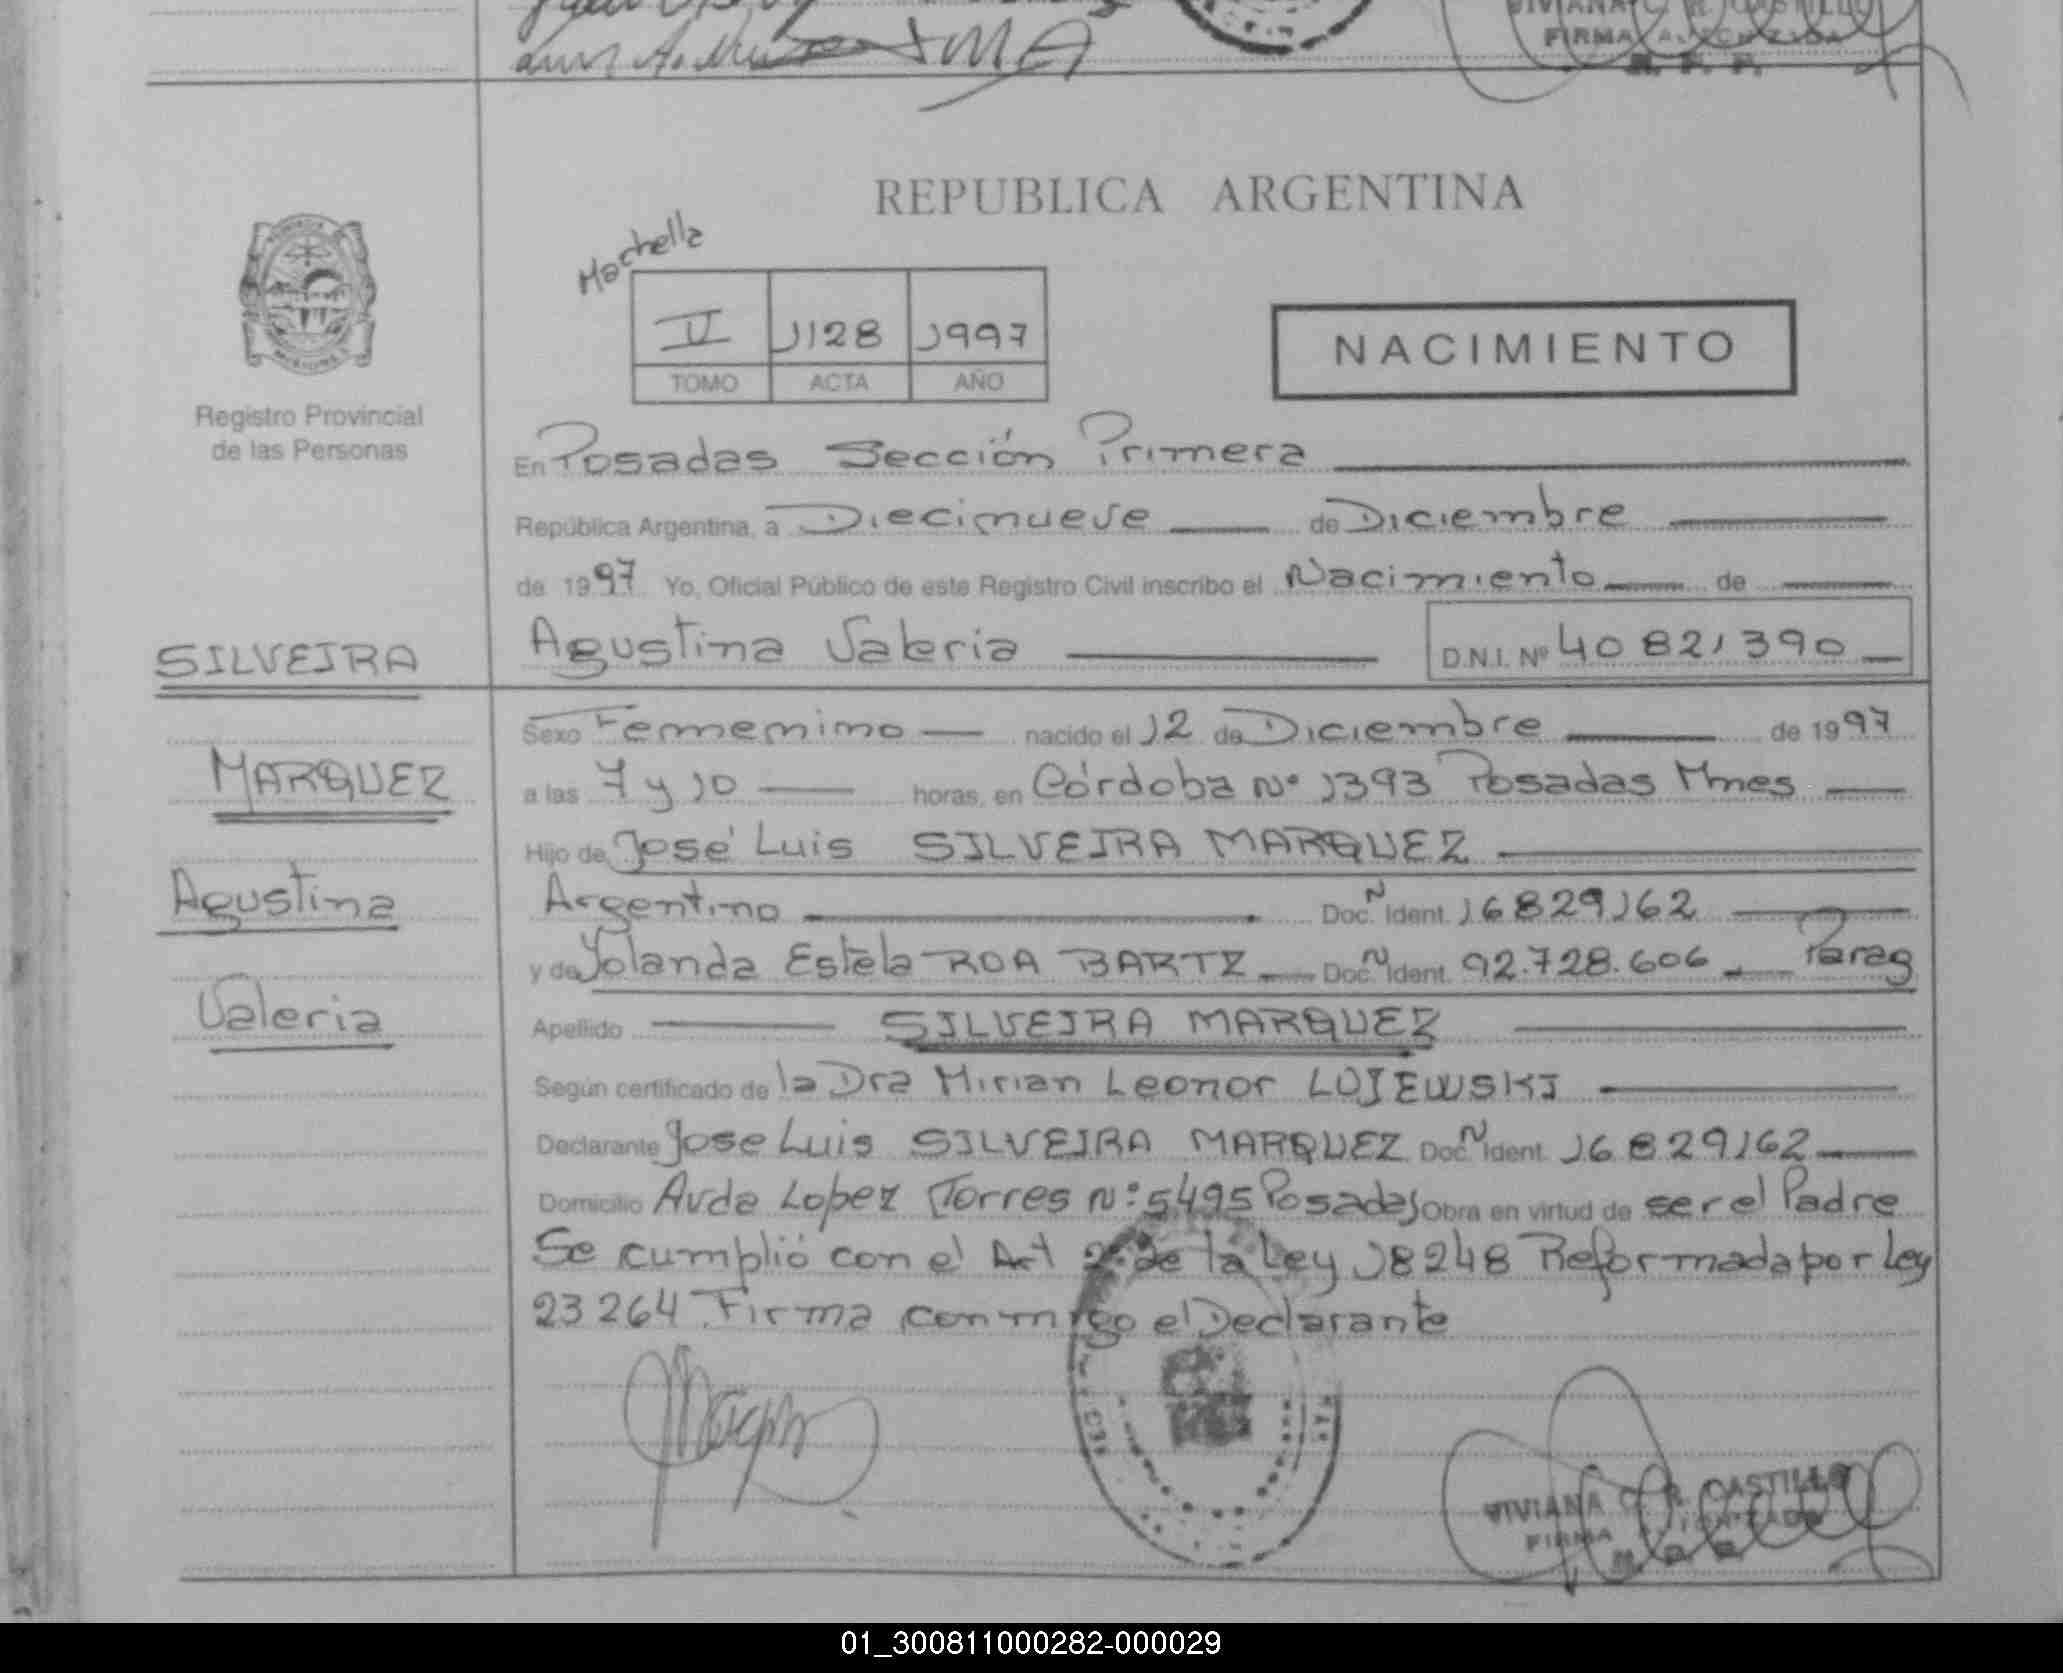 VIVIANA C. R. CASTILLO
FIRMA AUTORIZADA
R. P. P.
REPUBLICA ARGENTINA
Machella
II 1128 1997
TOMO ACTA AÑO
NACIMIENTO
Registro Provincial
de las Personas
En Posadas Sección Primera
República Argentina, a Diecinueve de Diciembre
de 1997 Yo, Oficial Público de este Registro Civil inscribo el Nacimiento de
Agustina Valeria D.N.I. Nº 40 821390
SILVEIRA
MARQUEZ
Agustina
Valeria
Sexo Femenino nacido el 12 de Diciembre de 1997
a las 7 y 10 horas, en Córdoba Nº 1393 Posadas Mnes
Hijo de José Luis SILVEIRA MARQUEZ
Argentino Doc. N Ident. 16829162
y de Yolanda Estela ROA BARTZ Doc. N Ident. 92.728.606 Parag
Apellido SILVEIRA MARQUEZ
Según certificado de la Dra Mirian Leonor LOJEWSKI
Declarante Jose Luis SILVEIRA MARQUEZ Doc. N Ident. 16829162
Domicilio Avda Lopez Torres Nº 5495 Posadas Obra en virtud de ser el Padre
Se cumplió con el Art 2º de la Ley 18248 Reformada por Ley
23264 Firma conmigo el Declarante
VIVIANA C. R. CASTILLO
FIRMA AUTORIZADA
01_300811000282-000029